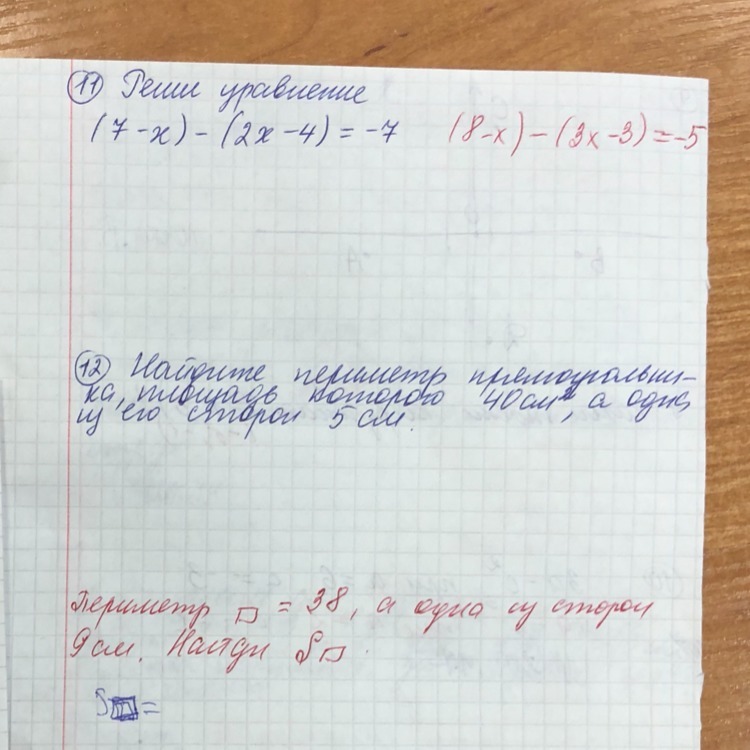 11 Реши уравнение
(7-x)-(2x-4)=-7 (8-x)-(3x-3)=-5
12 Найдите периметр прямоугольни-
ка, площадь которого 40см², а одна
из его сторон 5см.
Периметр ▭ = 38, а одна из сторон
9см. Найди S▭.
S▭=